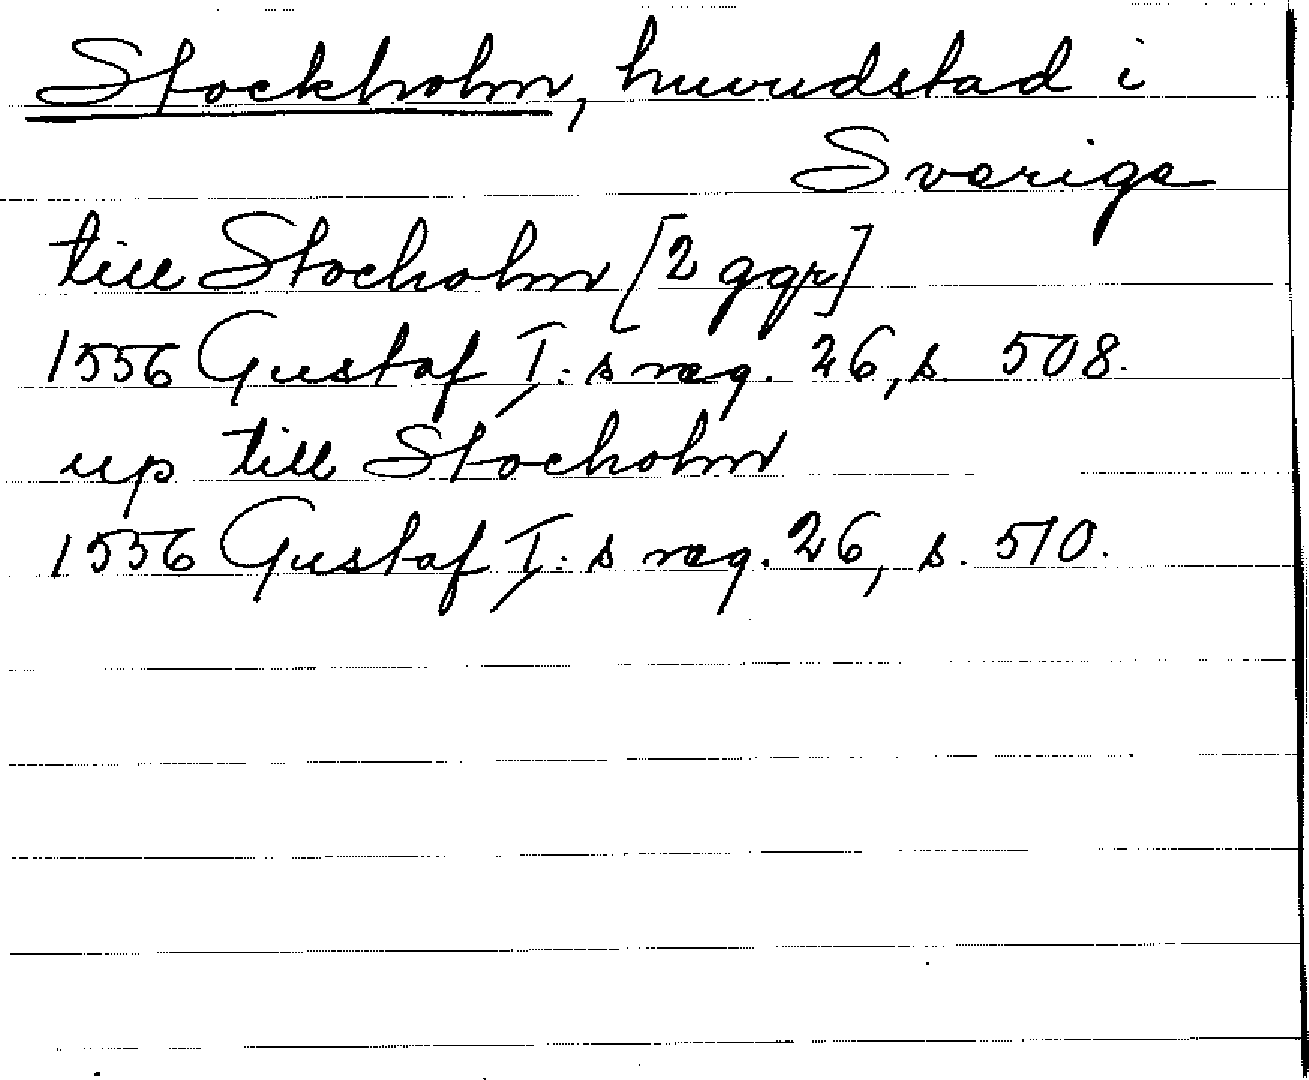 Stockholm, huvudstad i
Sverige
till Stocholm [2 ggr]
1556 Gustaf I:s reg. 26, s. 508.
up till Stocholm
1556 Gustaf I:s reg. 26, s. 510.